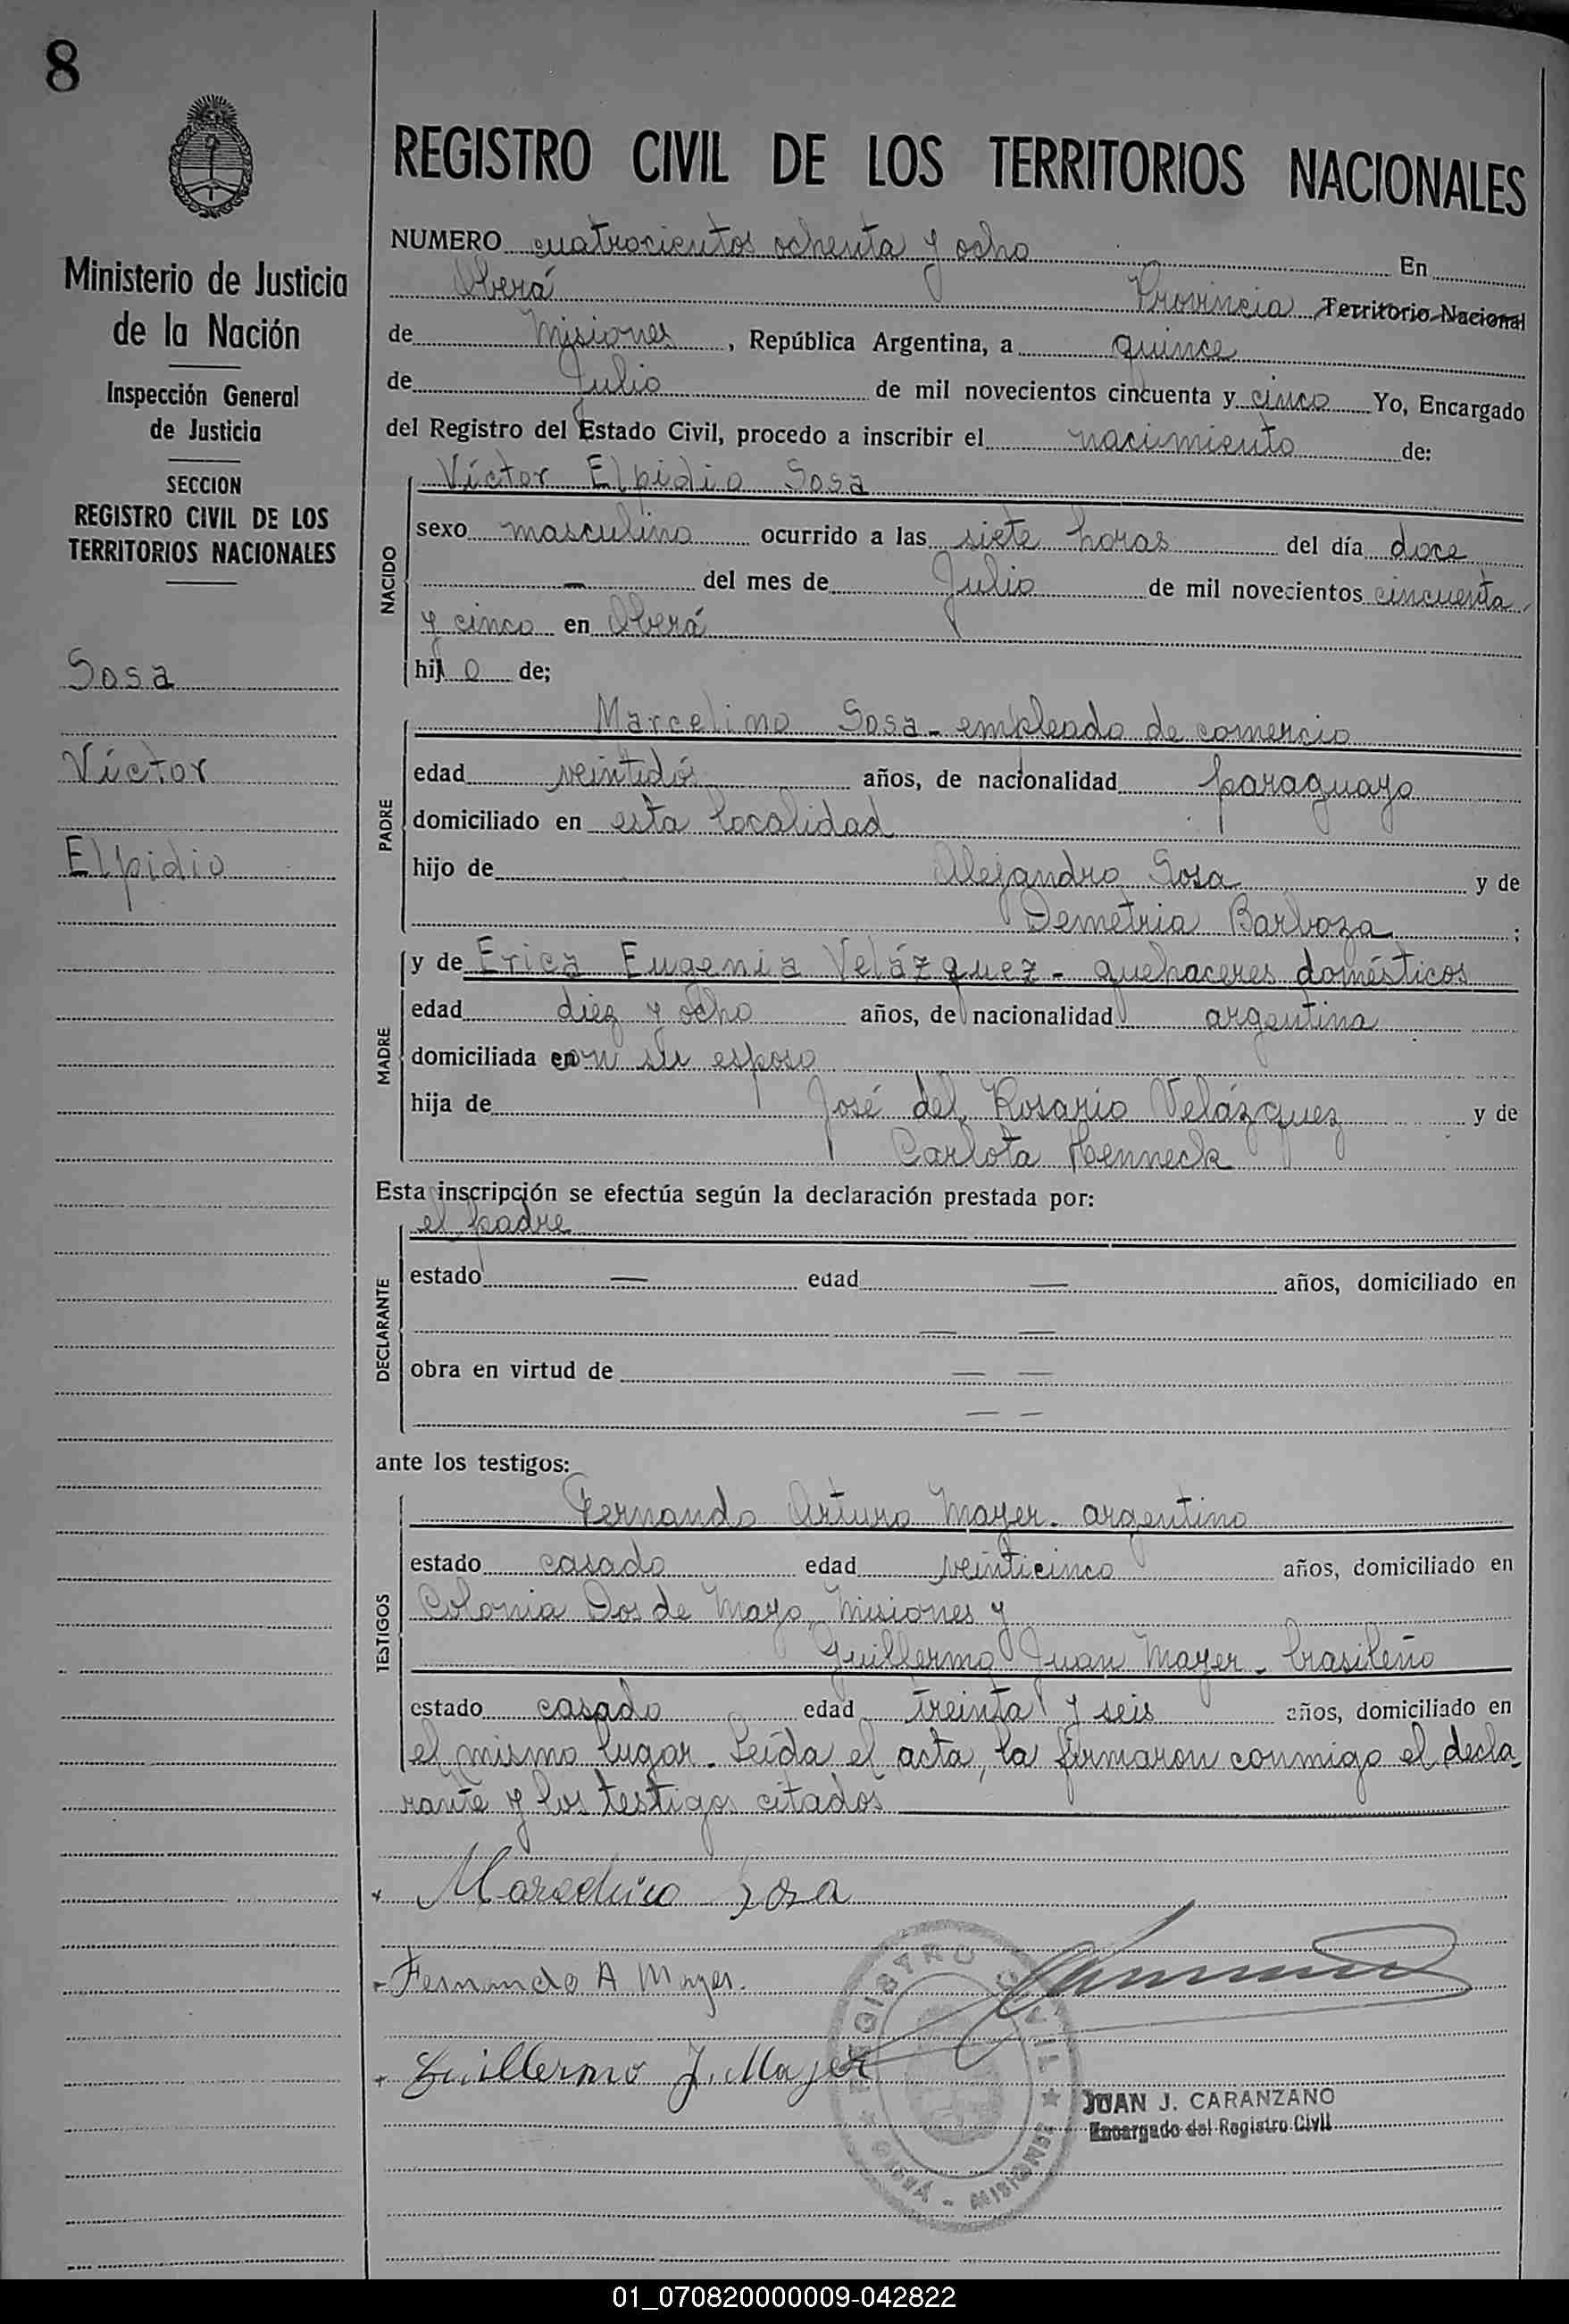 8
REGISTRO CIVIL DE LOS TERRITORIOS NACIONALES
Ministerio de Justicia
de la Nación
Inspección General
de Justicia
SECCION
REGISTRO CIVIL DE LOS
TERRITORIOS NACIONALES
Sosa
Víctor
Elpidio
NUMERO cuatrocientos ochenta y ocho En
Oberá Provincia Territorio Nacional
de Misiones, República Argentina, a quince
de Julio de mil novecientos cincuenta y cinco Yo, Encargado
del Registro del Estado Civil, procedo a inscribir el nacimiento de:
NACIDO
Víctor Elpidio Sosa
sexo masculino ocurrido a las siete horas del día doce
— del mes de Julio de mil novecientos cincuenta
y cinco en Oberá
hijo de;
PADRE
Marcelino Sosa - empleado de comercio
edad veintidós años, de nacionalidad paraguayo
domiciliado en esta localidad
hijo de Alejandro Sosa y de
Demetria Barboza ;
MADRE
y de Erica Eugenia Velázquez - quehaceres domésticos
edad diez y ocho años, de nacionalidad argentina
domiciliada con su esposo
hija de José del Rosario Velázquez y de
Carlota Henneck
Esta inscripción se efectúa según la declaración prestada por:
DECLARANTE
el padre
estado — edad — años, domiciliado en
— —
obra en virtud de — —
— —
ante los testigos:
TESTIGOS
Fernando Arturo Mayer - argentino
estado casado edad veinticinco años, domiciliado en
Colonia Dos de Mayo, Misiones y
Guillermo Juan Mayer - brasileño
estado casado edad treinta y seis años, domiciliado en
el mismo lugar. Leída el acta, la firmaron conmigo el decla-
rante y los testigos citados
Marcelino Sosa
Fernando A Mayer.
Guillermo J. Mayer
REGISTRO CIVIL
OBERÁ - MISIONES
JUAN J. CARANZANO
Encargado del Registro Civil
01_070820000009-042822